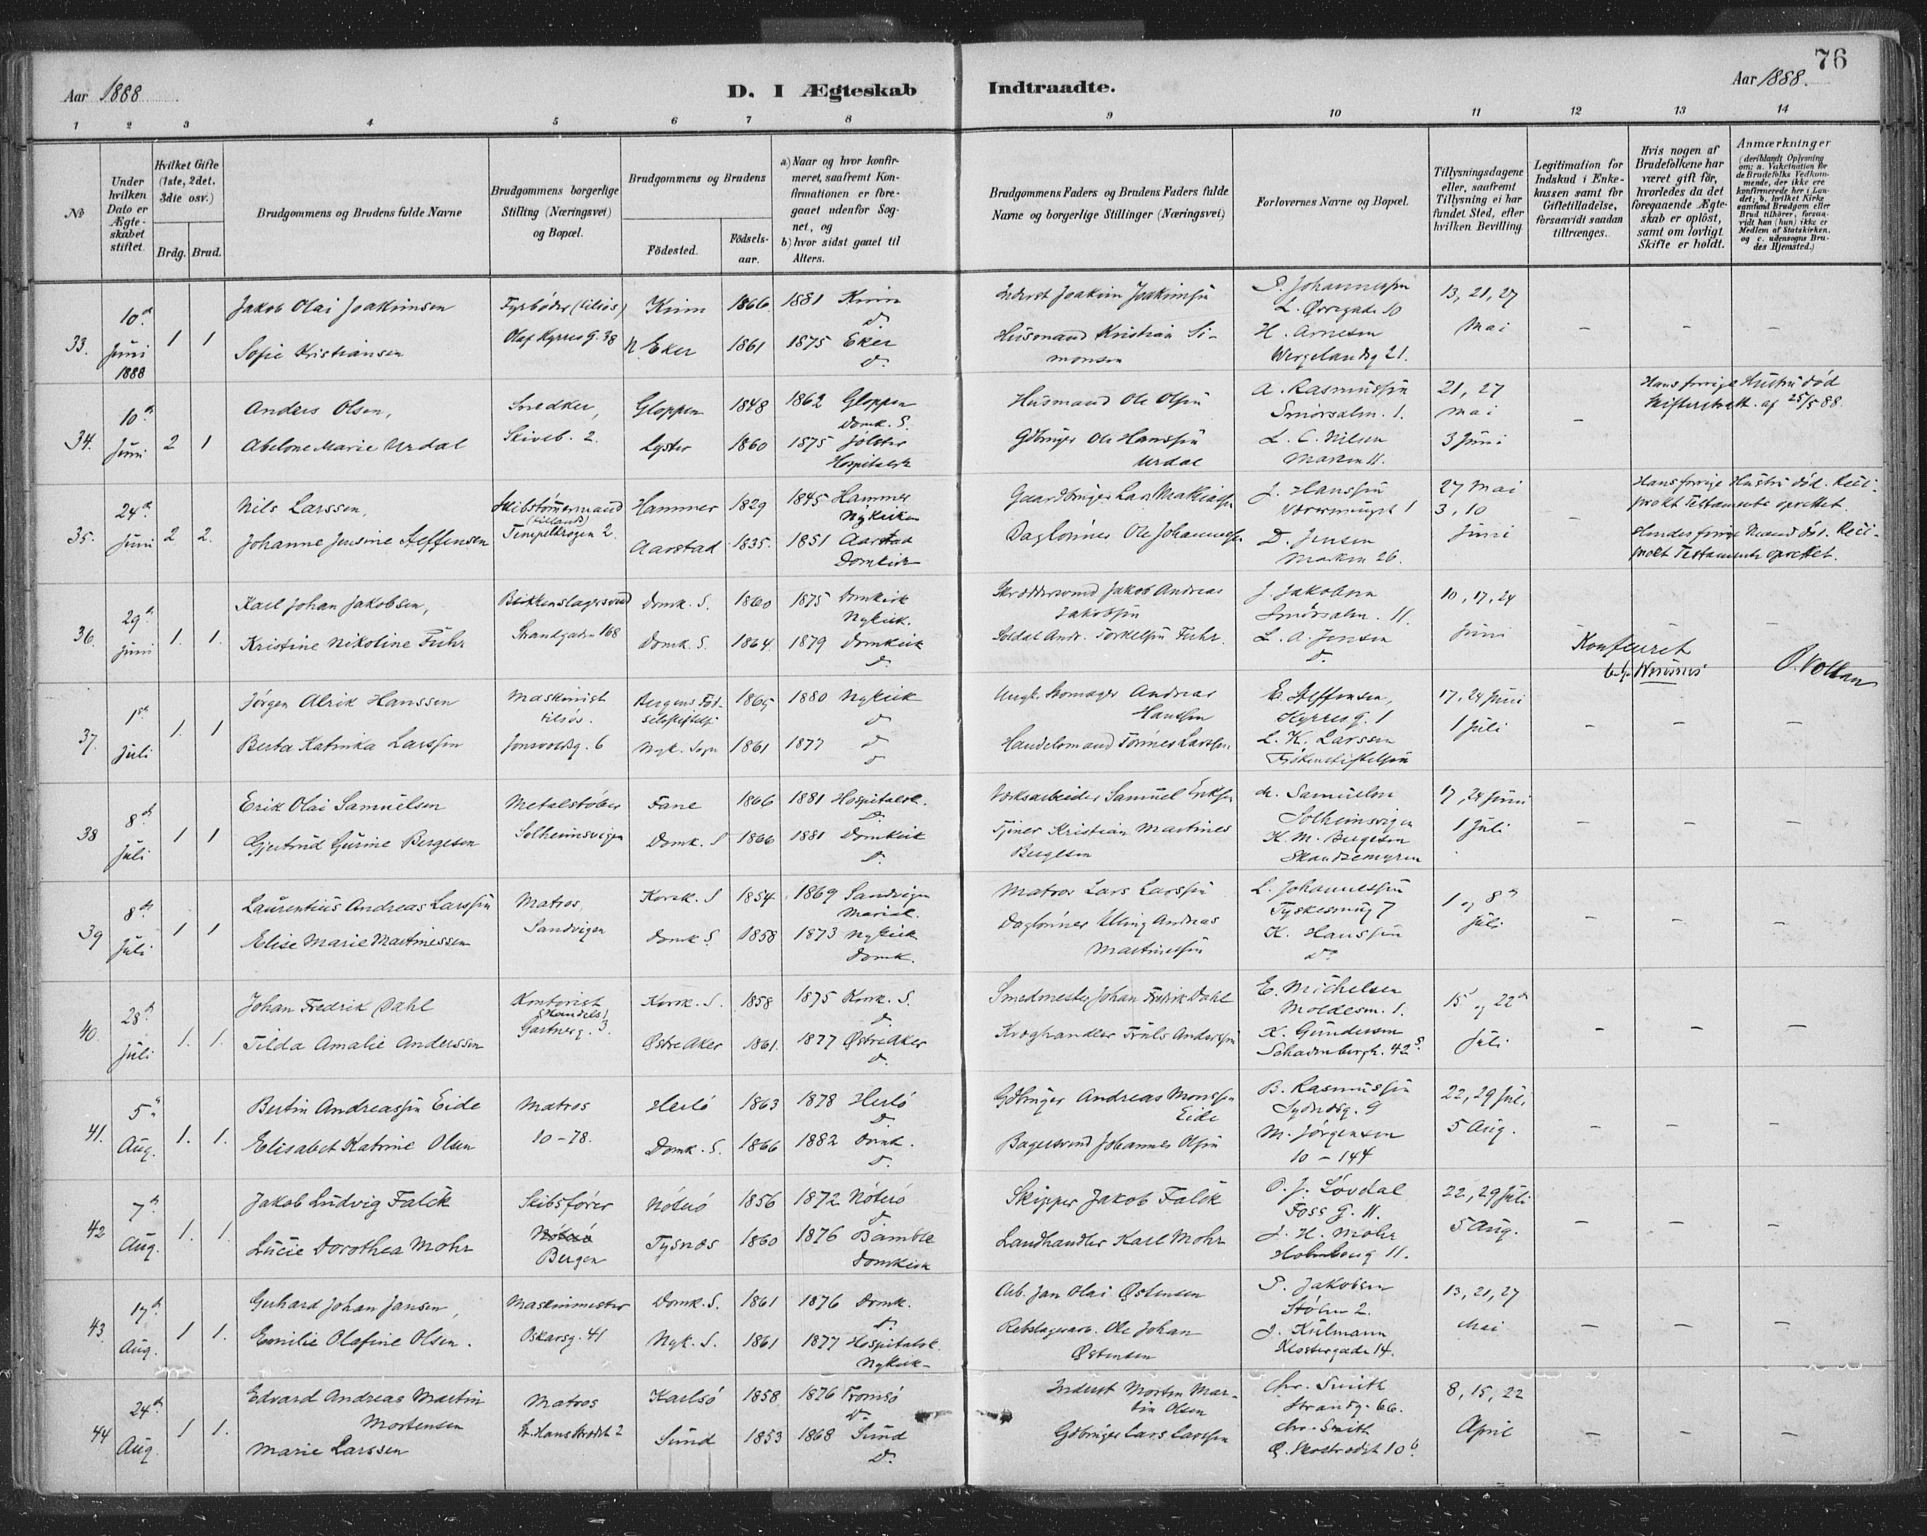 76
Aar 1888.
D. I Ægteskab Indtraadte.
Aar 1888.
1 2 3 4 5 6 7 8 9 10 11 12 13 14
No
Under hvilken Dato er Ægteskabet stiftet.
Hvilket Gifte (1ste, 2det, 3die osv.)
Brdg. Brud.
Brudgommens og Brudens fulde Navne
Brudgommens borgerlige Stilling (Næringsvei) og Bopæl.
Brudgommens og Brudens
Fødested.
Fødselsaar.
a) Naar og hvor konfirmeret, saafremt Konfirmationen er foregaaet udenfor Sognet, og
b) hvor sidst gaaet til Alters.
Brudgommens Faders og Brudens Faders fulde Navne og borgerlige Stillinger (Næringsvei)
Forlovernes Navne og Bopæl.
Tillysningsdagene eller, saafremt Tillysning ei har fundet Sted, efter hvilken Bevilling.
Legitimation for Indskud i Enkekassen samt for Giftetilladelse, forsaavidt saadan tiltrænges.
Hvis nogen af Brudefolkene har været gift før, hvorledes da det foregaaende Ægteskab er opløst, samt om lovligt Skifte er holdt.
Anmærkninger
(deriblandt Oplysning om: a. Vakcination for de Brudefolks Vedkommende, der ikke ere konfirmerede her i Landet; b. hvilket Kirkesamfund Brudgom eller Brud tilhører, forsaavidt han (hun) ikke er Medlem af Statskirken, og c. udensogns Brudes Hjemsted.)
33. 10d Juni 1888 1 1
Jakob Olai Joakimsen Fyrbøder (tilsøs) Kinn 1866 1881 Kinn d.
Inderst Joakim Joakimsen P. Johannessen L. Øvregade 10 13, 21, 27
Sofie Kristiansen Olaf Kyrres G. 38 N. Eker 1861 1875 Eker d.
Husmand Kristian Simonsen H. Arnesen Wergelandsg 21. Mai – – –
34. 10d Juni 2 1
Anders Olsen, Snedker, Gloppen 1848 1862 Gloppen Domk. S.
Husmand Ole Olsen A. Rasmussen Smørsalm. 1. 21, 27 Mai – Hans forrige Hustru død Skifterettsatt. af 25/5 88.
Abelone Marie Urdal Skiveb. 2. Lyster 1860 1875 Jølster Hospitalsk
Gdbruger Ole Hanssen Urdal L. C. Nilsen Marken 11. 3 Juni
35. 24d Juni 2 2.
Nils Larssen, Skibstømmermand (tillands) Hammer 1829 1845 Hammer Nykirken
Gaardbruger Lars Mathiassen J. Hanssen 1 27 Mai 3, 10 Juni – Hans forrige Hustru død. Reciprokt Testamente oprettet.
Johanne Jensine Steffensen Tempelkrogen 2. Aarstad 1835. 1851 Aarstad Domkirk
Daglønner Ole Johannessen D. Jensen Marken 26. Hendes forrige Mand død. Reciprokt Testamente oprettet.
36. 29d Juni 1. 1.
Karl Johan Jakobsen, Blikkenslagersvend Domk. S. 1860 1875 Domkirk Nykirk.
Skræddersvend Jakob Andreas Jakobsen J. Jakobsen Smørsalm. 11. 10, 17, 24 Juni – – –
Kristine Nikoline Fuhr Strandgaden 168 Domk. S. 1864. 1879 Domkirk d.
Soldat Andr. Torkelsen Fuhr. L. A. Jensen d.
Konfereret
O. Vollan
37. 1ste Juli 1. 1
Jørgen Alrik Hanssen Maskinist tilsøs. Bergens Fødselsstiftelse 1865 1880 Nykirk d
Ungk. Skomager Andreas Hanssen E. Steffensen, Kyrresg. 1 17, 24 Juni 1 Juli – – –
Berta Katinka Larssen Jonsvoldsg. 6 Nyk. Sogn 1861 1877 d d
Handelsmand Tønnes Larssen L. K. Larssen
38 8de Juli 1 1
Erik Olai Samuelsen Metalstøber Fane 1866 1881 Hospitalsk. d.
Verksarbeider Samuel Eriksen M. Samuelsen Solheimsvigen 17, 24 Juni 1 Juli – – –
Gjertrud Gurine Bergesen Solheimsvigen Domk. S 1866 1881 Domkirk d.
Tjener Kristian Martines Bergesen K. M. Bergesen Skandsemyren
39 8de Juli 1 1
Laurentius Andreas Larssen Matros, Korsk. S 1854 1869 Sandvigen Mariek.
Matros Lars Larssen L. Johannessen Tyskesmug 7 1 og 8de Juli – – –
Elise Marie Martinessen Sandvigen Domk S. 1858 1873 Nykirk Domk.
Daglønner Elling Andreas Martinessen K. Hanssen do
40. 28d Juli 1. 1.
Johan Fredrik Dahl Kontorist (Handels) Korsk. S. 1858 1875 Korsk. S. d.
Smedmester Johan Fredrik Dahl E. Michelsen Moldesm. 1. 15 og 22d Juli – – –
Tilda Amalie Anderssen Gartnerg. 3. Østre Aker 1861. 1877 Østre Aker d.
Kvæghandler Truls Anderssen K. Gundersen 42
41. 5d Aug. 1. 1.
Bertin Andreassen Eide Matros Herlø 1863 1878 Herlø d.
Gdbruger Andreas Monssen Eide B. Rasmussen Sydnesg. 9 22, 29 Juli 5 Aug. – – –
Elisabet Katrine Olsen 10 – 78. Domk. S. 1866 1882 Domk. d.
Bagersvend Johannes Olsen M. Jørgensen 10 – 144
42 7d Aug. 1. 1.
Jakob Ludvig Falck Skibsfører Nøterø 1856 1872 Nøterø d
Skipper Jakob Falck O. J. Løvdal Foss G. 11. 22, 29 Juli 5 Aug. – – –
Lucie Dorothea Mohr Nøterø Bergen Tysnæs 1860 1876 Bamble Domkirk
Landhandler Karl Mohr J. H. Mohr Holbergs 11.
43. 17d Aug. 1 1.
Gerhard Johan Jansen, Maskinmester Domk. S. 1861 1876 Domk. d.
Arb. Jan Olai Østensen P. Jakobsen Stølen 2. 13, 21, 27 Mai – – –
Emilie Olafine Olsen. Oskarsg. 41 Nyk. S. 1861 1877 Hospitalsk. Nykirk
Rebslagerarb. Ole Johan Østensen J. Kulmann Klostergade 14.
44 24d Aug. 1 1.
Edvard Andreas Martin Mortensen Matros Karlsø 1858 1876 Tromsø d.
Inderst Morten Martin Olsen Chr. Smith Strandg. 66. 8, 15, 22 April – – –
Marie Larssen St. Hansstrædet 2 Sund 1853 1868 Sund d.
Gdbruger Lars Larssen Chr. Smith